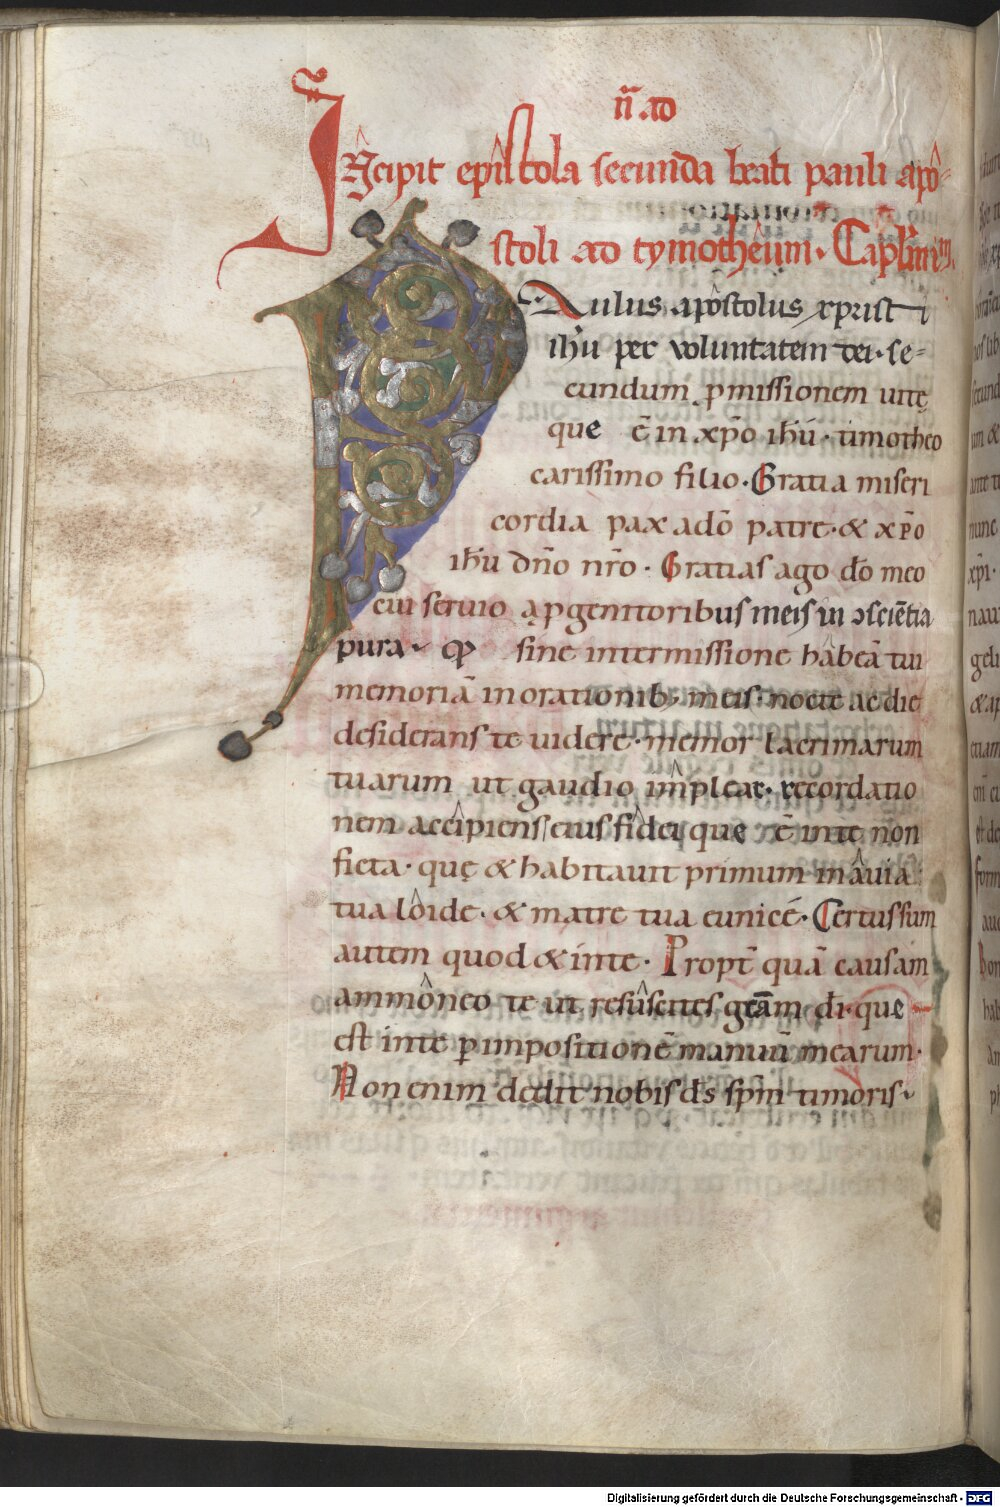 ii̅. ad
Jncipit epistola secunda beati pauli apo=
stoli ad tymotheum. Caplm̅ i̅m.
Aulus apostolus xprist i
ihu̅ per voluntatem dei. se=
cundum p̱missionem uitę
que e̅ in xp̅o ihu̅. timotheo
carissimo filio. Gratia miseri
cordia pax ado̅ patre. & xp̅o
ihu̅ dn̅o nr̅o. Gratias ago do̅ meo
cui seruio ap̱genitoribus meis in ↄscie̅tia
pura. qp̱ sine intermissione habea̅ tui
memoria̅ inorationib; meis. nocte ac die
desiderans te uidere. memor lacrimarum
tuarum ut gaudio implear. recordatio
nem accipiens eius fidei que e̅ inte non
ficta. quę & habitauit primum inauia
tua loide. & matre tua eunicé. Certus sum
autem quod & inte. Propt̅ qua̅ causam
ammoneo te ut resuscites gr̅a̅m di̅. que
est inte p̱ impositione̅ manuu̅ mearum.
Non enim dedit nobis ds̅ spm̅ timoris.
Digitalisierung gefördert durch die Deutsche Forschungsgemeinschaft - DFG